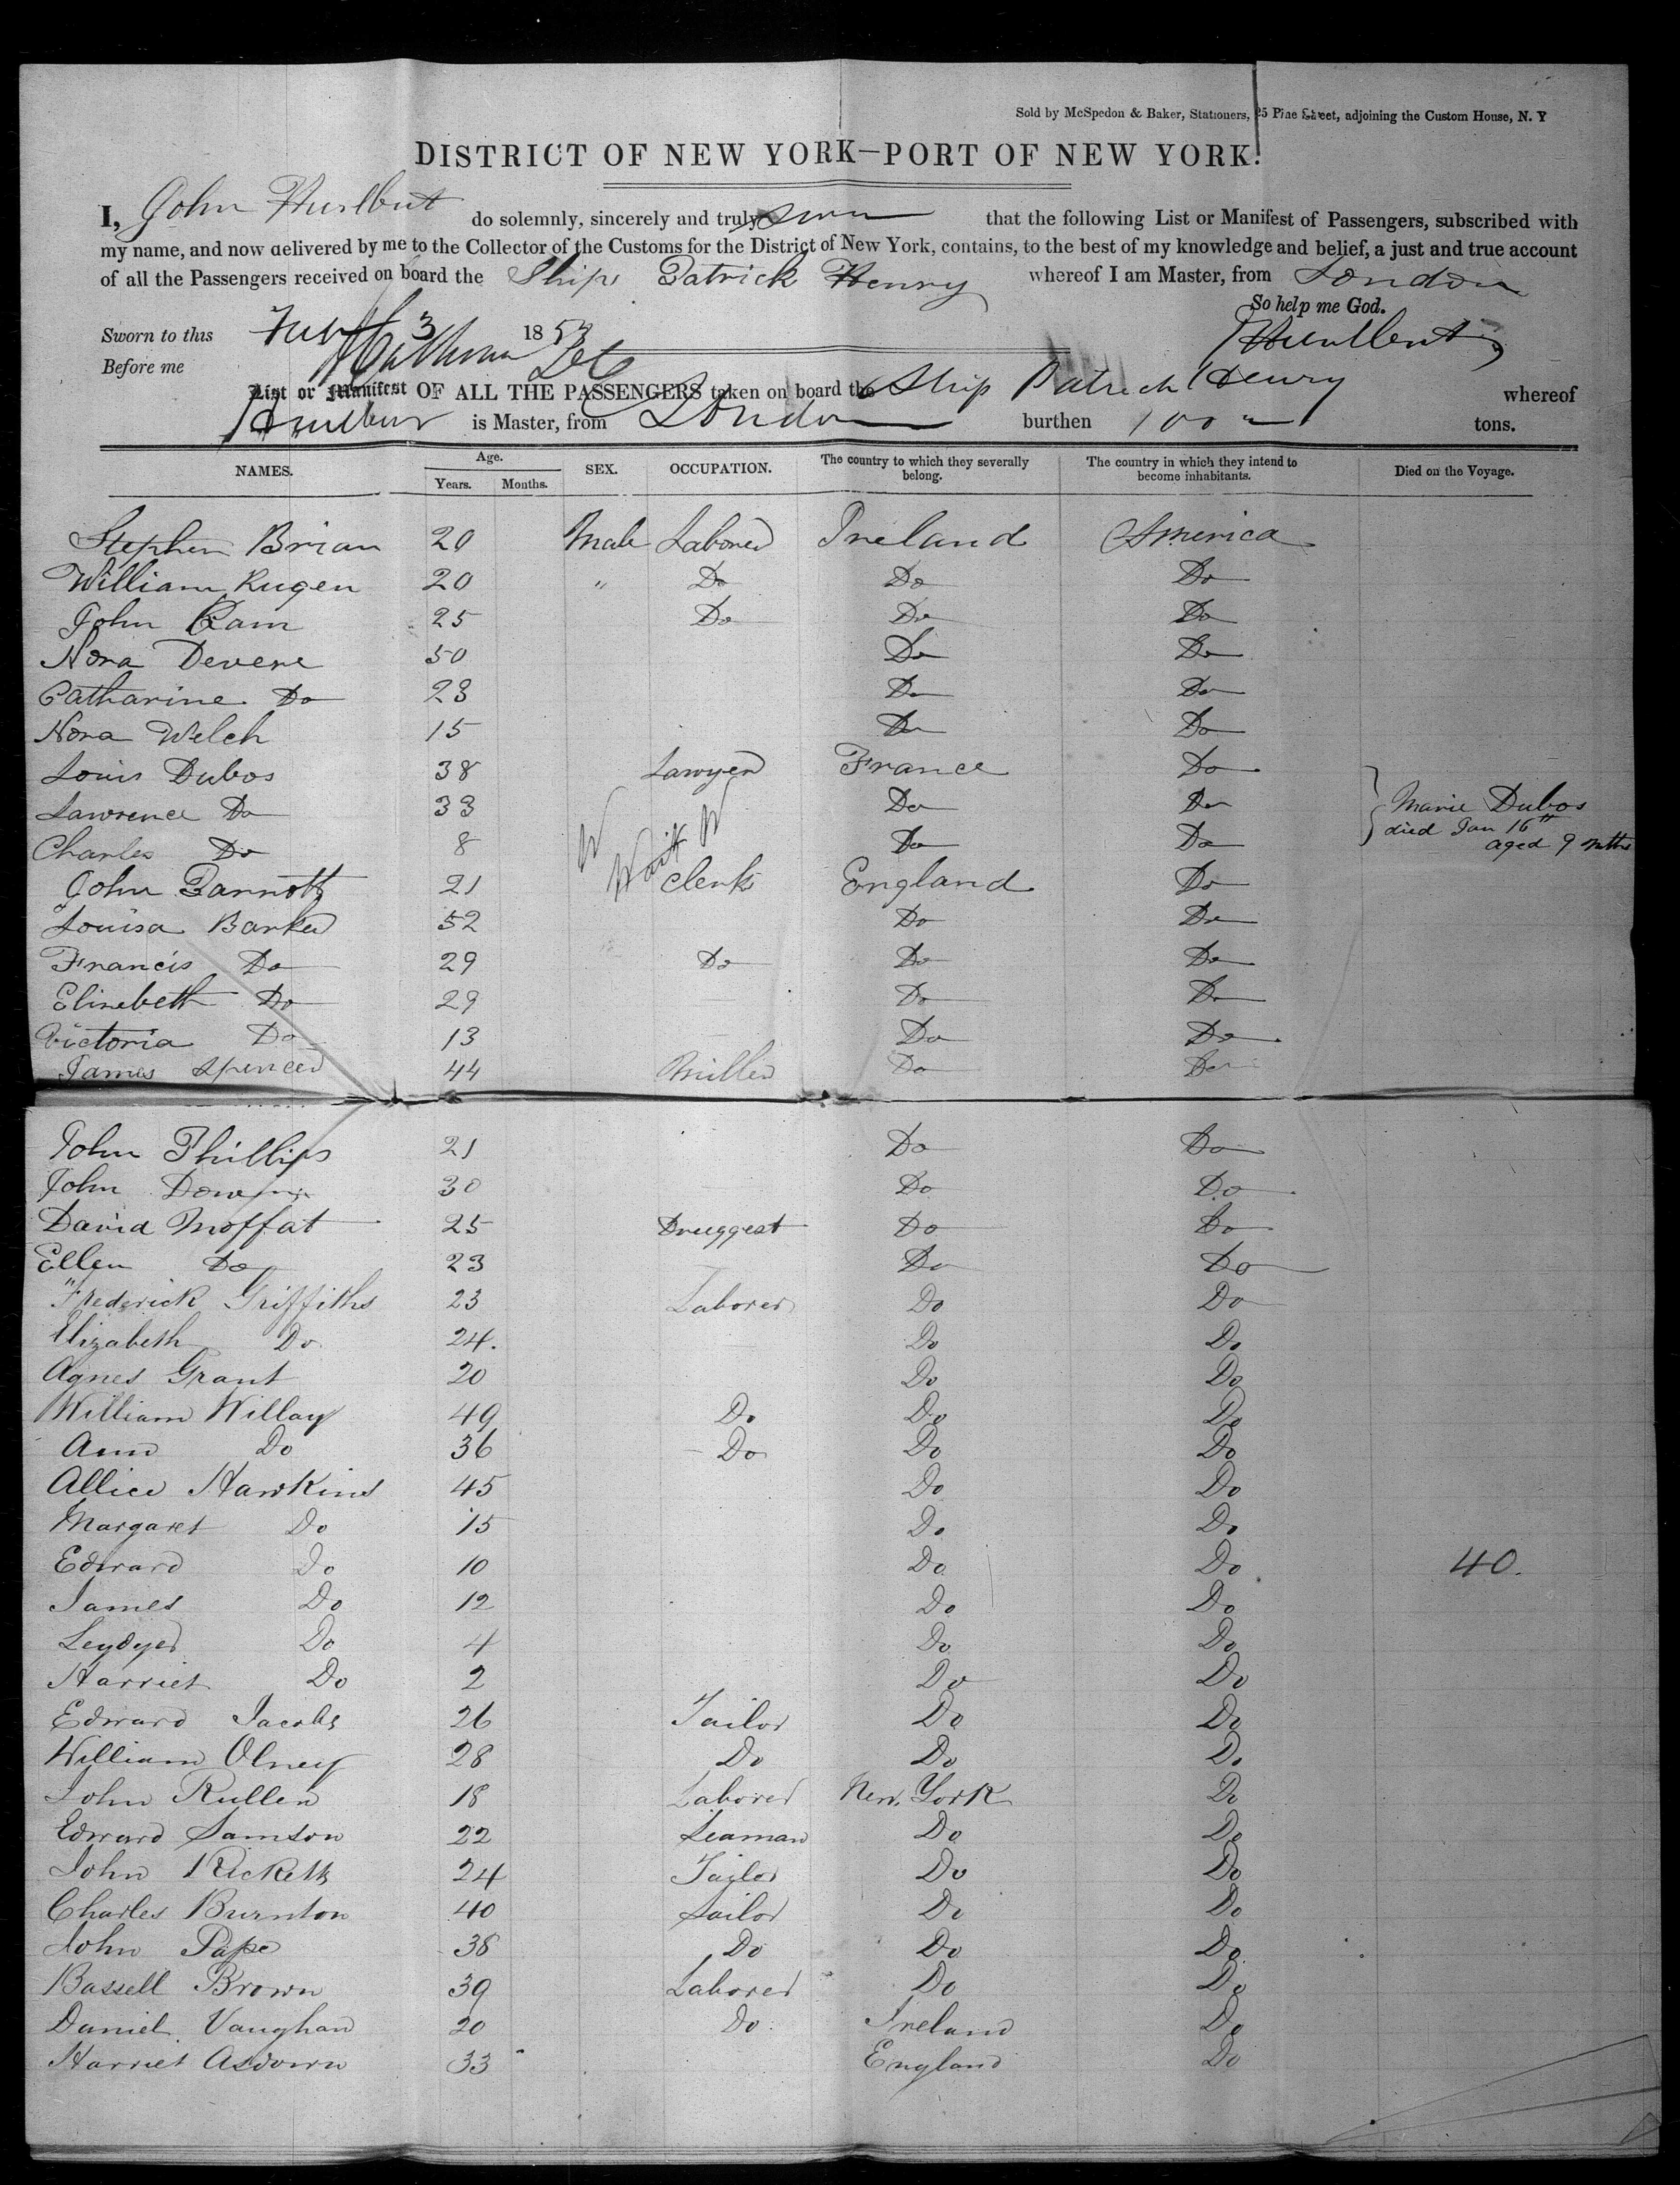 Sold by McSpedon & Baker, Stationers, 25 Pine Street, adjoining the Custom House, N. Y
DISTRICT OF NEW YORK—PORT OF NEW YORK.
I, John Hurlbut do solemnly, sincerely and truly swear that the following List or Manifest of Passengers, subscribed with
my name, and now delivered by me to the Collector of the Customs for the District of New York, contains, to the best of my knowledge and belief, a just and true account
of all the Passengers received on board the Ship Patrick Henry whereof I am Master, from London
So help me God.
Sworn to this 3 1853 J Hurlbut
Before me
List or Manifest OF ALL THE PASSENGERS taken on board the Ship Patrick Henry whereof
Hurlbut is Master, from London burthen 1000 tons.
NAMES. Age. Years. Months. SEX. OCCUPATION. The country to which they severally belong. The country in which they intend to become inhabitants. Died on the Voyage.
Stephen Brian 20 Male Laborer Ireland America
William Rugen 20 " Do Do Do
John Ram 25 Do Do Do
Nora Devere 50 Do Do
Catharine Do 23 Do Do
Nora Welch 15 Do Do
Louis Dubos 38 Lawyer France Do
Lawrence Do 33 Do Do Marie Dubos
died Jan 16th
Charles Do 8 Do Do aged 9 mths
John Parrott 21 Clerk England Do
Louisa Barker 52 Do Do
Francis Do 29 Do Do Do
Elinebeth Do 29 Do Do
Victoria Do 13 Do Do
James Spencer 44 Miller Do Do
John Phillips 21 Do Do
John 30 Do Do
David Moffat 25 Druggest Do Do
Ellen Do 23 Do Do
Frederick Griffiths 23 Laborer Do Do
Elizabeth Do 24. Do Do
Agnes Grant 20 Do Do
William Willay 49 Do Do Do
Ann Do 36 Do Do Do
Allice Hawkins 45 Do Do
Margaret Do 15 Do Do
Edward Do 10 Do Do 40.
James Do 12 Do Do
Do 4 Do Do
Harriet Do 2 Do Do
Edward Jacobs 26 Tailor Do Do
William Olney 28 Do Do Do
John Rullen 18 Laborer New York Do
Edward Samson 22 Seaman Do Do
John Ricketts 24 Tailor Do Do
Charles Burnton 40 Sailor Do Do
John Pape 38 Do Do Do
Bassell Brown 39 Laborer Do Do
Daniel Vaughan 20 Do Ireland Do
Harriet Asdown 33 England Do